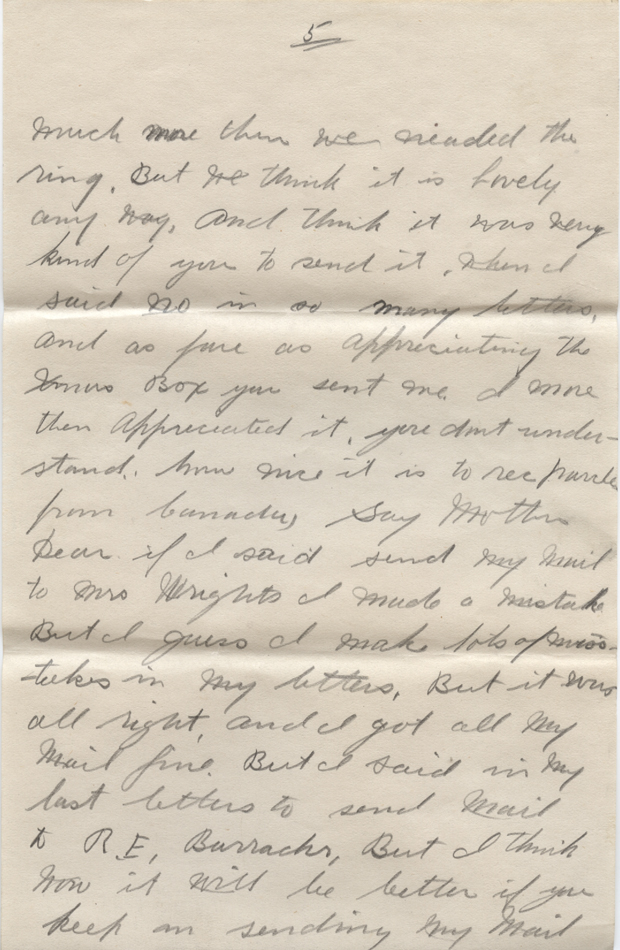 5
much more then we neaded the
ring. But we think it is lovely
any way, And think it was very
kind of you to send it, when I
said no in so many letters,
and as fare as appreciating the
Xmas Box you sent me. I more
then Appreciated it, you dont under-
stand. how nice it is to rec parcels
from Canada, Say Mother
Dear if I said send my Mail
to Mrs Wrights I made a mistake
But I guess I make lots of miss-
takes in my letters, But it was
all right, and I got all my
Mail fine. But I said in my
last letters to send Mail
to R.E, Barracks, But I think
now it will be better if you
keep on sending my Mail